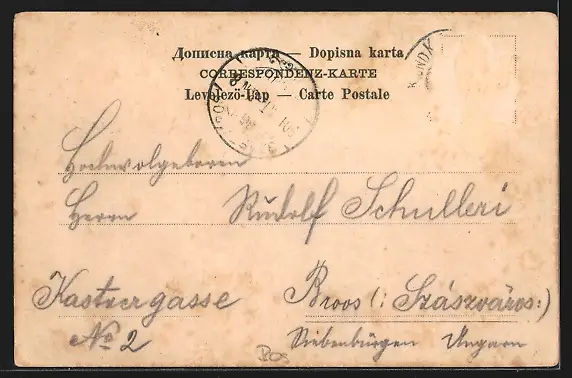 Дописна карта — Dopisna karta
CORRESPONDENZ-KARTE
Levelező-Lap — Carte Postale
Hochwolgeboren
Herrn Rudolf Schulleri
Kastnergasse Broos (: Szászváros:)
No 2 Siebenbürgen Ungarn